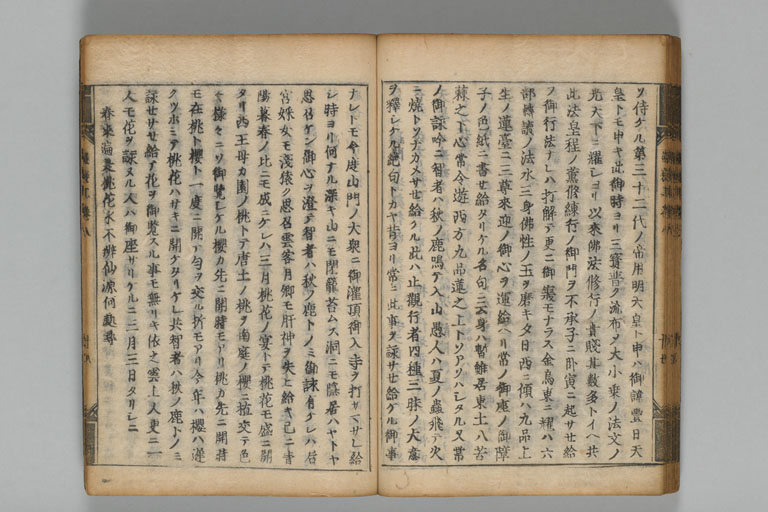 ツ侍ケル第三十二代ノ帝用明天皇ト申ハ御諱豐日天
皇トモ申キ此御時ヨリ三寳普ク流布メ大小乗ノ法文ノ
光天下ニ耀シヨリ以来佛法修行ノ貴賤其数多トイヘ共
此法皇程ノ薫修練行ノ御門ヲ不承子ニ卧寅ニ起サセ給
フ御行法ナレハ打解テ更ニ御寝モナラス金烏東ニ耀ハ六
部轉讀ノ法水三身佛性ノ玉ヲ磨キ夕日西ニ傾ハ九品上
生ノ蓮臺ニ三尊来迎ノ御心ヲ運給ヘリ常ノ御座ノ御障
子ノ色紙ニ書セ給タリケル名句ニ云身ハ暫雖居東土八苦
蕀之下心常今遊西方九品蓮之上トソアソハシタル又常
ノ御詠吟ニ智者ハ秋ノ鹿鳴テ入山愚人ハ夏ノ蟲飛テ火
ニ燒トソナカメサセ給ケル此ハ止觀行者四種三昧ノ大意
ヲ釋シケル絶句トカヤ昔ヨリ常ニ此事ヲ詠サセ給ケル御事
ナレトモ今度山門ノ大衆ニ御灌頂御入寺ヲ打サマサレ給
シ時ヨリ何ナル深キ山ニモ閉籠苔ムス洞ニモ隱居ハヤトヤ
思召ケン御心ヲ澄テ智者ハ秋ノ鹿トノミ御詠有ケレハ后
宮婇女モ淺猿ク思召雲客月卿モ肝神ヲ失ヒ給キ已ニ青
陽暮春ノ比ニモ成ニケレハ三月桃花ノ宴トテ桃花モ盛ニ開
タリ西王母カ園ノ桃トテ唐土ノ桃ヲ南庭ノ櫻ニ植交テ色
々様々ニソ御覽シケル櫻カ先ニ開時モアリ桃カ先ニ開時
モ在桃ト櫻ト一度ニ開テ匂ヲ交ル折モアリ今年ハ櫻ハ遲
クツホミテ桃花ハサキニ開ケタリケレ共智者ハ秋ノ鹿トノミ
詠サセサセ給テ花ヲ御覽スル事モ無リキ依之雲上人更ニ一
人モ花ヲ詠スル人ハ御座サリケルニ三月三日タリシニ
春来遍是桃花水不辨仙源何處尋